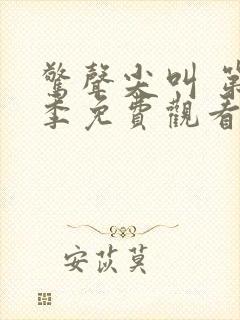 驚聲尖叫 第
季免費觀看
安苡莫